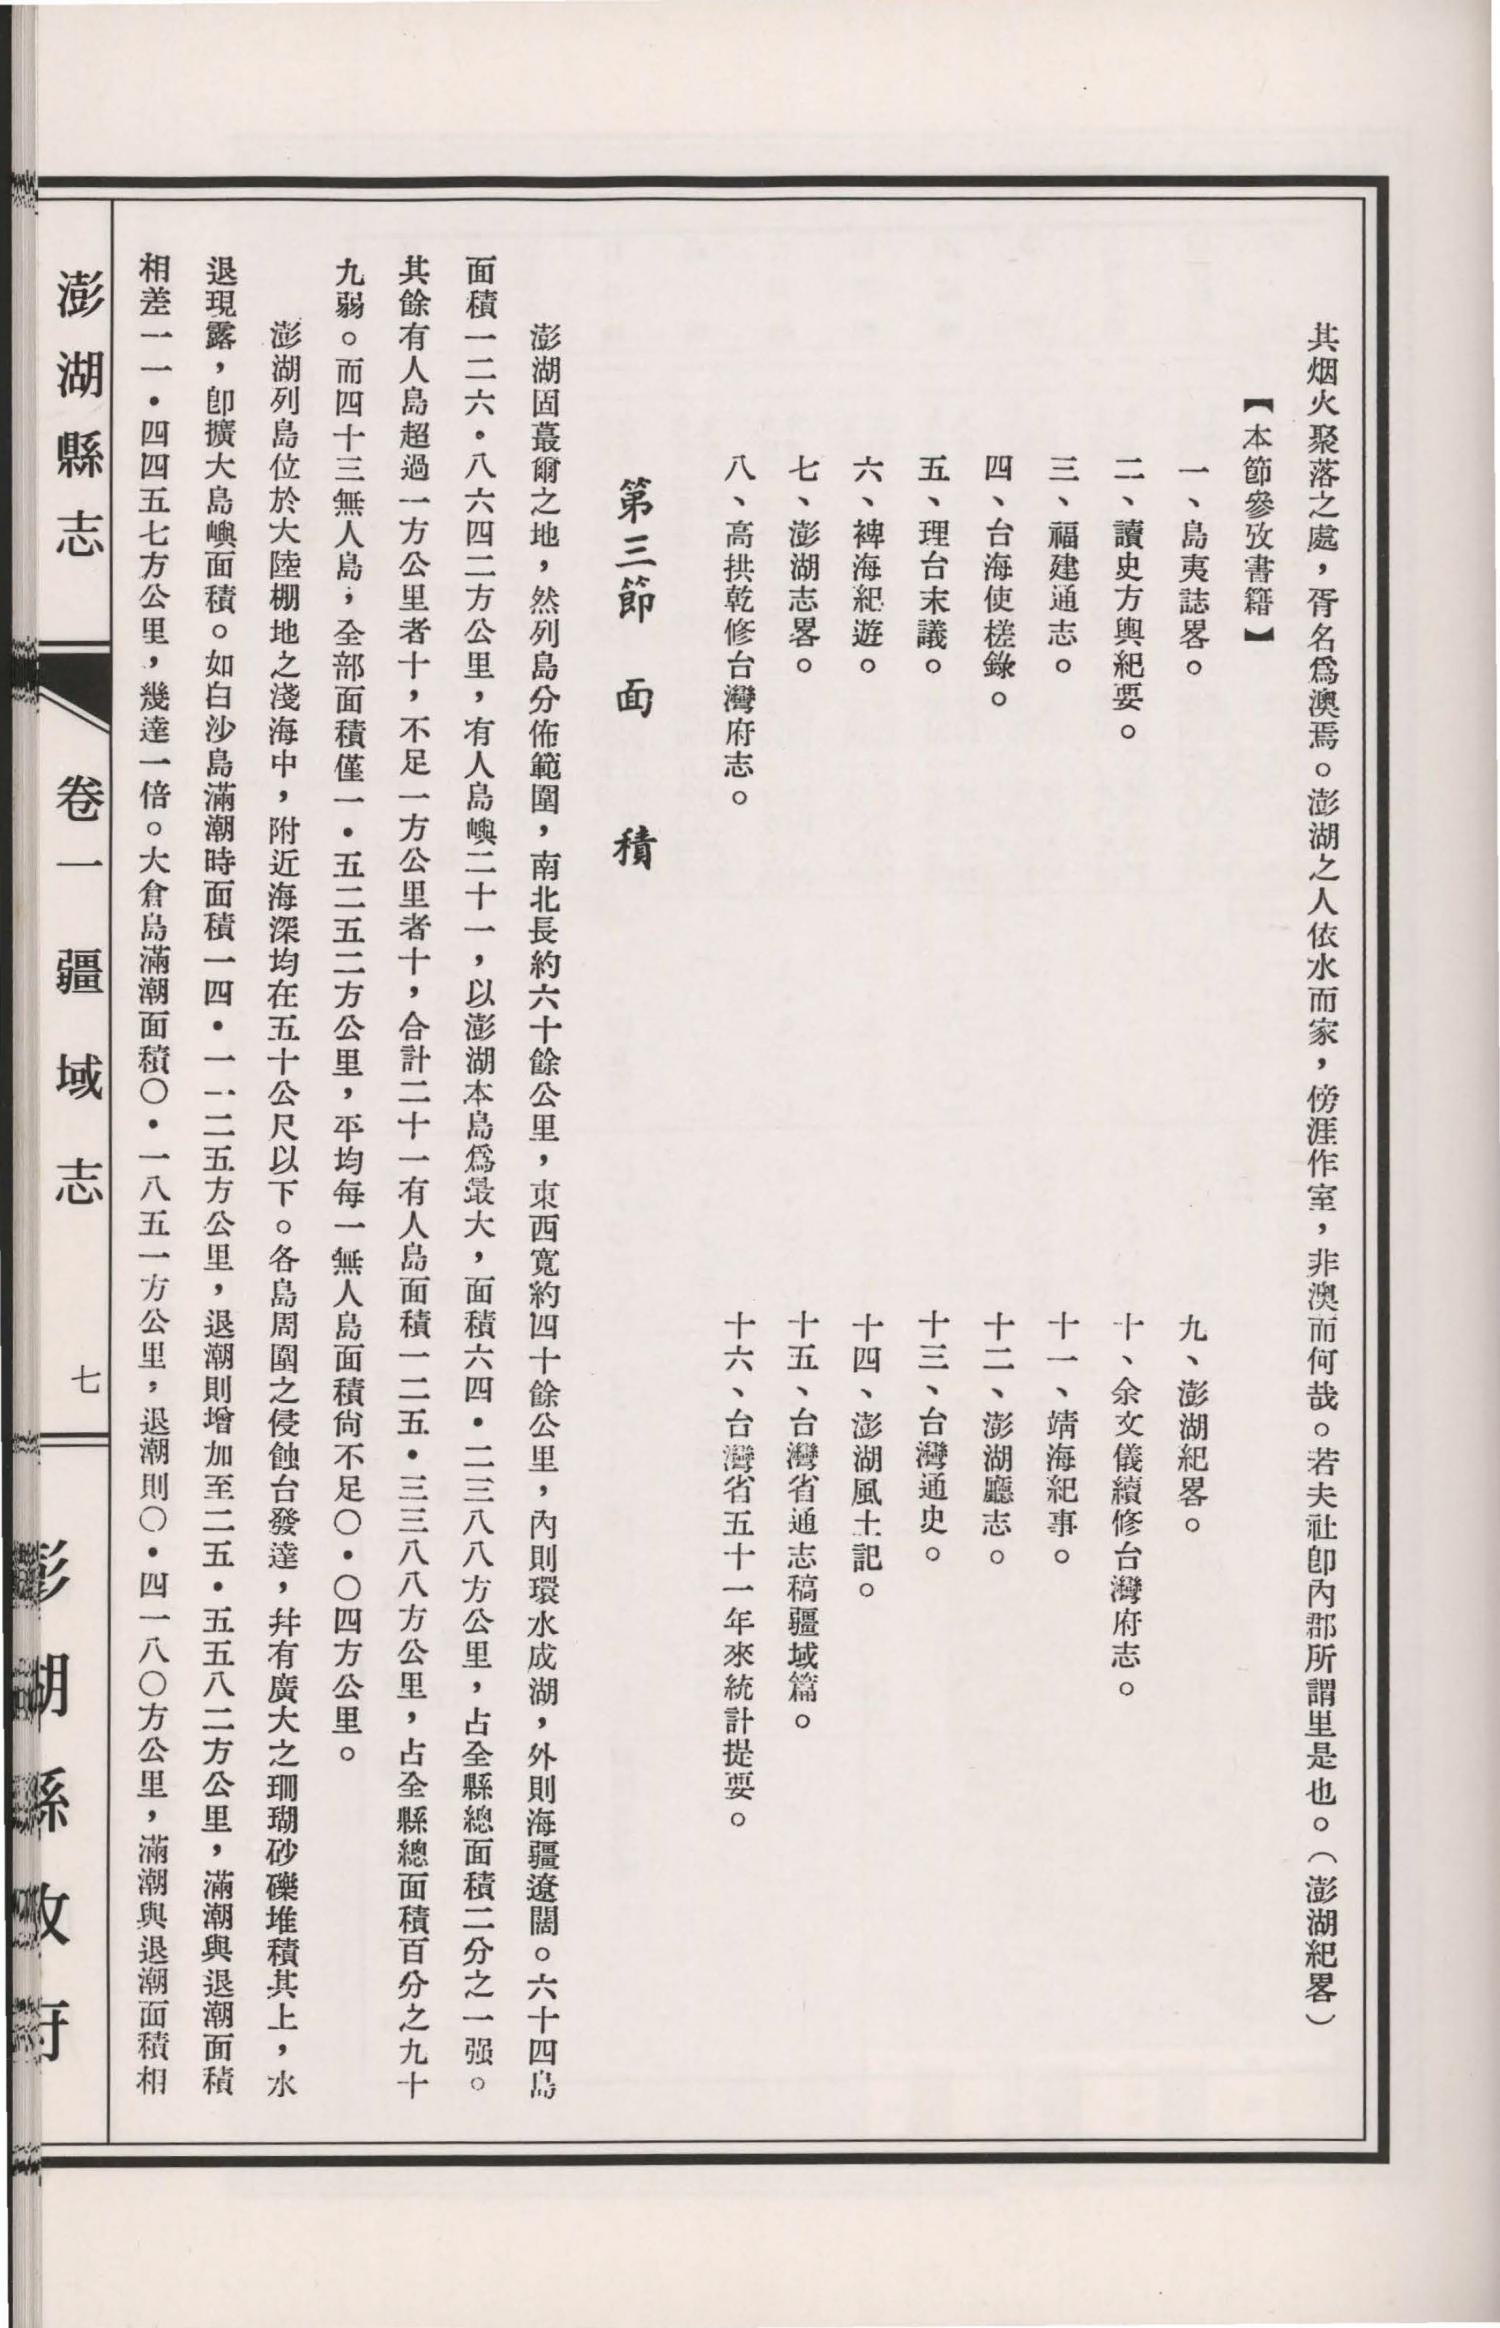 其烟火聚落之處，胥名爲澳焉。澎湖之人依水而家，傍涯作室，非澳而何哉。若夫社卽內郡所謂里是也。（澎湖紀畧）
【本節參攷書籍】
一、島夷誌畧。
二、讀史方輿紀要。
三、福建通志。
四、台海使槎錄。
五、理台末議。
六、裨海紀遊。
七、澎湖志畧。
八、高拱乾修台灣府志。
九、澎湖紀畧。
十、余文儀續修台灣府志。
十一、靖海紀事。
十二、澎湖廳志。
十三、台灣通史。
十四、澎湖風土記。
十五、台灣省通志稿疆域篇。
十六、台灣省五十一年來統計提要。
第三節　面　積
澎湖固蕞爾之地，然列島分佈範圍，南北長約六十餘公里，東西寬約四十餘公里，內則環水成湖，外則海疆遼闊。六十四島
面積一二六・八六四二方公里，有人島嶼二十一，以澎湖本島爲最大，面積六四・二三八八方公里，占全縣總面積二分之一强。
其餘有人島超過一方公里者十，不足一方公里者十，合計二十一有人島面積一二五・三三八八方公里，占全縣總面積百分之九十
九弱。而四十三無人島，全部面積僅一・五二五二方公里，平均每一無人島面積尙不足〇・〇四方公里。
澎湖列島位於大陸棚地之淺海中，附近海深均在五十公尺以下。各島周圍之侵蝕台發達，幷有廣大之珊瑚砂礫堆積其上，水
退現露，卽擴大島嶼面積。如白沙島滿潮時面積一四・一一二五方公里，退潮則增加至二五・五五八二方公里，滿潮與退潮面積
相差一一・四四五七方公里，幾達一倍。大倉島滿潮面積〇・一八五一方公里，退潮則〇・四一八〇方公里，滿潮與退潮面積相
澎湖縣志　卷一疆域志　七
澎湖縣政府